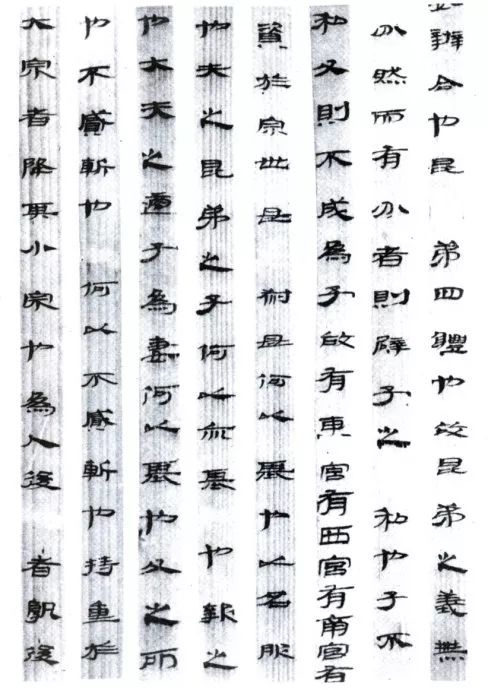 辨合也昆弟四體也故昆弟之義無
分然而有分者則辟子之私也子不
私父則不成為子故有東宮有西宮有南宮有
資於宗世母叔母何以基也以名服
也夫之昆弟之子何以亦基也報之
也大夫之適子為妻何以基也父之所
也不貳斬也何以不貳斬也持重於
大宗者降其小宗也為人後者孰後